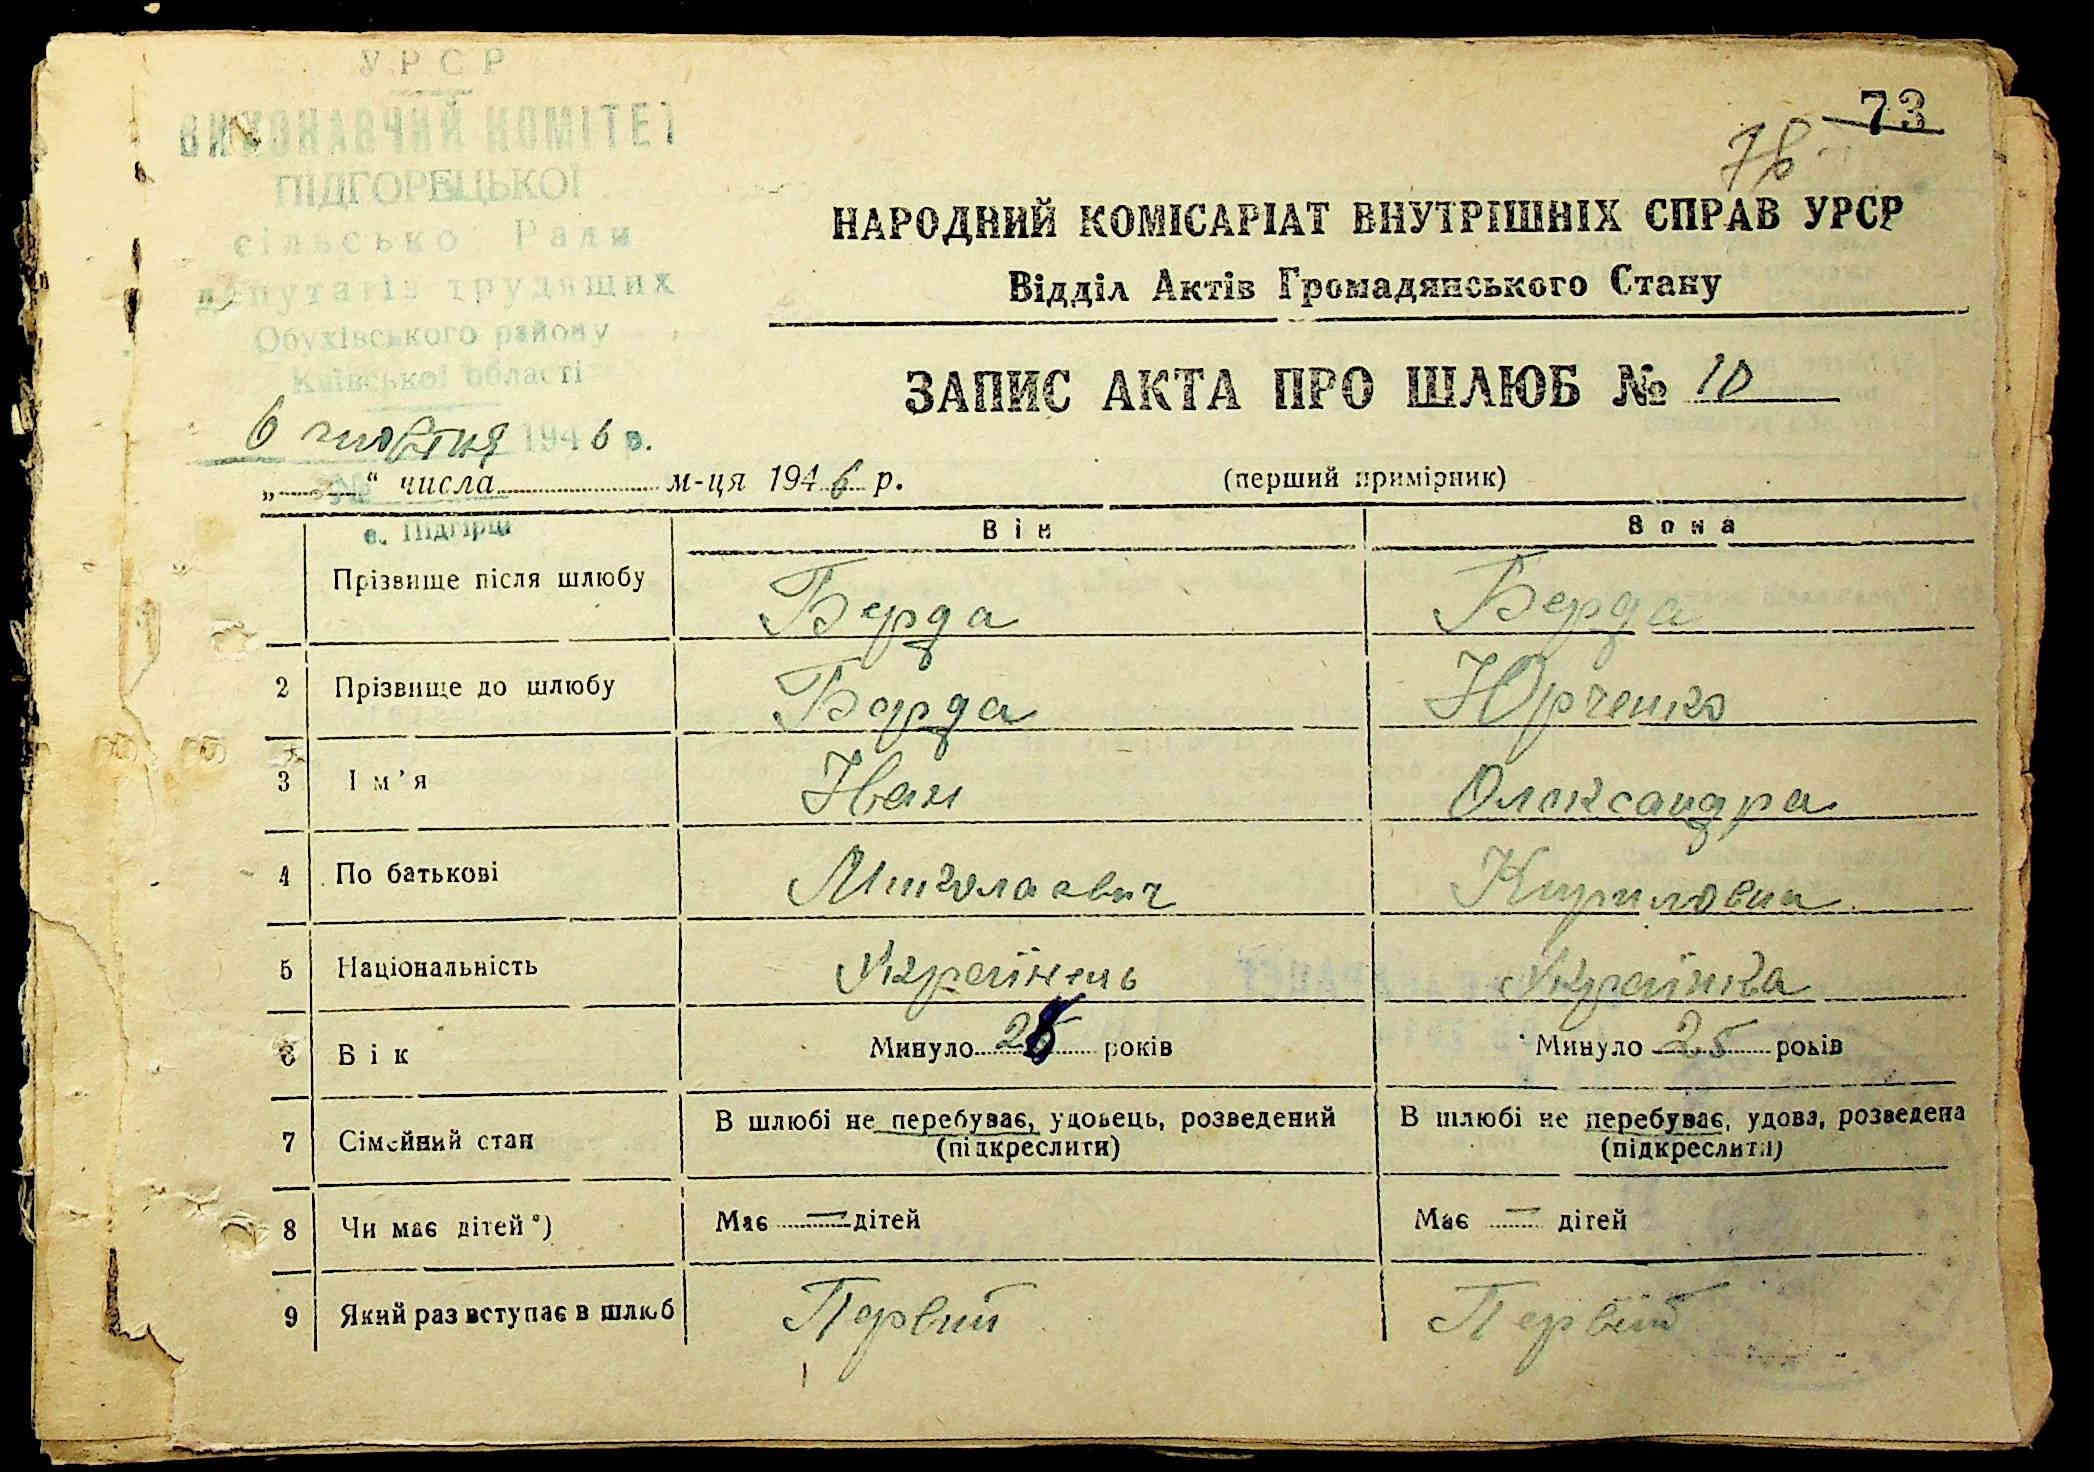 УРСР
ВИКОНАВЧИЙ КОМІТЕТ
ПІДГОРЕЦЬКОЇ
сільсько Ради
депутатів трудящих
Обухівського району
Київської області
6 жовтня 1946 р.
с. Підгірці
73
78
НАРОДНИЙ КОМІСАРІАТ ВНУТРІШНІХ СПРАВ УРСР
Відділ Актів Громадянського Стану
ЗАПИС АКТА ПРО ШЛЮБ № 10
„ “ числа м-ця 1946 р. (перший примірник)
Він Вона
Прізвище після шлюбу Берда Берда
2 Прізвище до шлюбу Берда Юрченко
3 Ім’я Іван Олександра
4 По батькові Миколаевич Кириловна
5 Національність Українець Українка
6 Вік Минуло років Минуло 25 років
7 Сімейний стан В шлюбі не перебуває, удовець, розведений В шлюбі не перебуває, удова, розведена
(підкреслити) (підкреслити)
8 Чи має дітей*) Має — дітей Має — дітей
9 Який раз вступає в шлюб Первий Первий